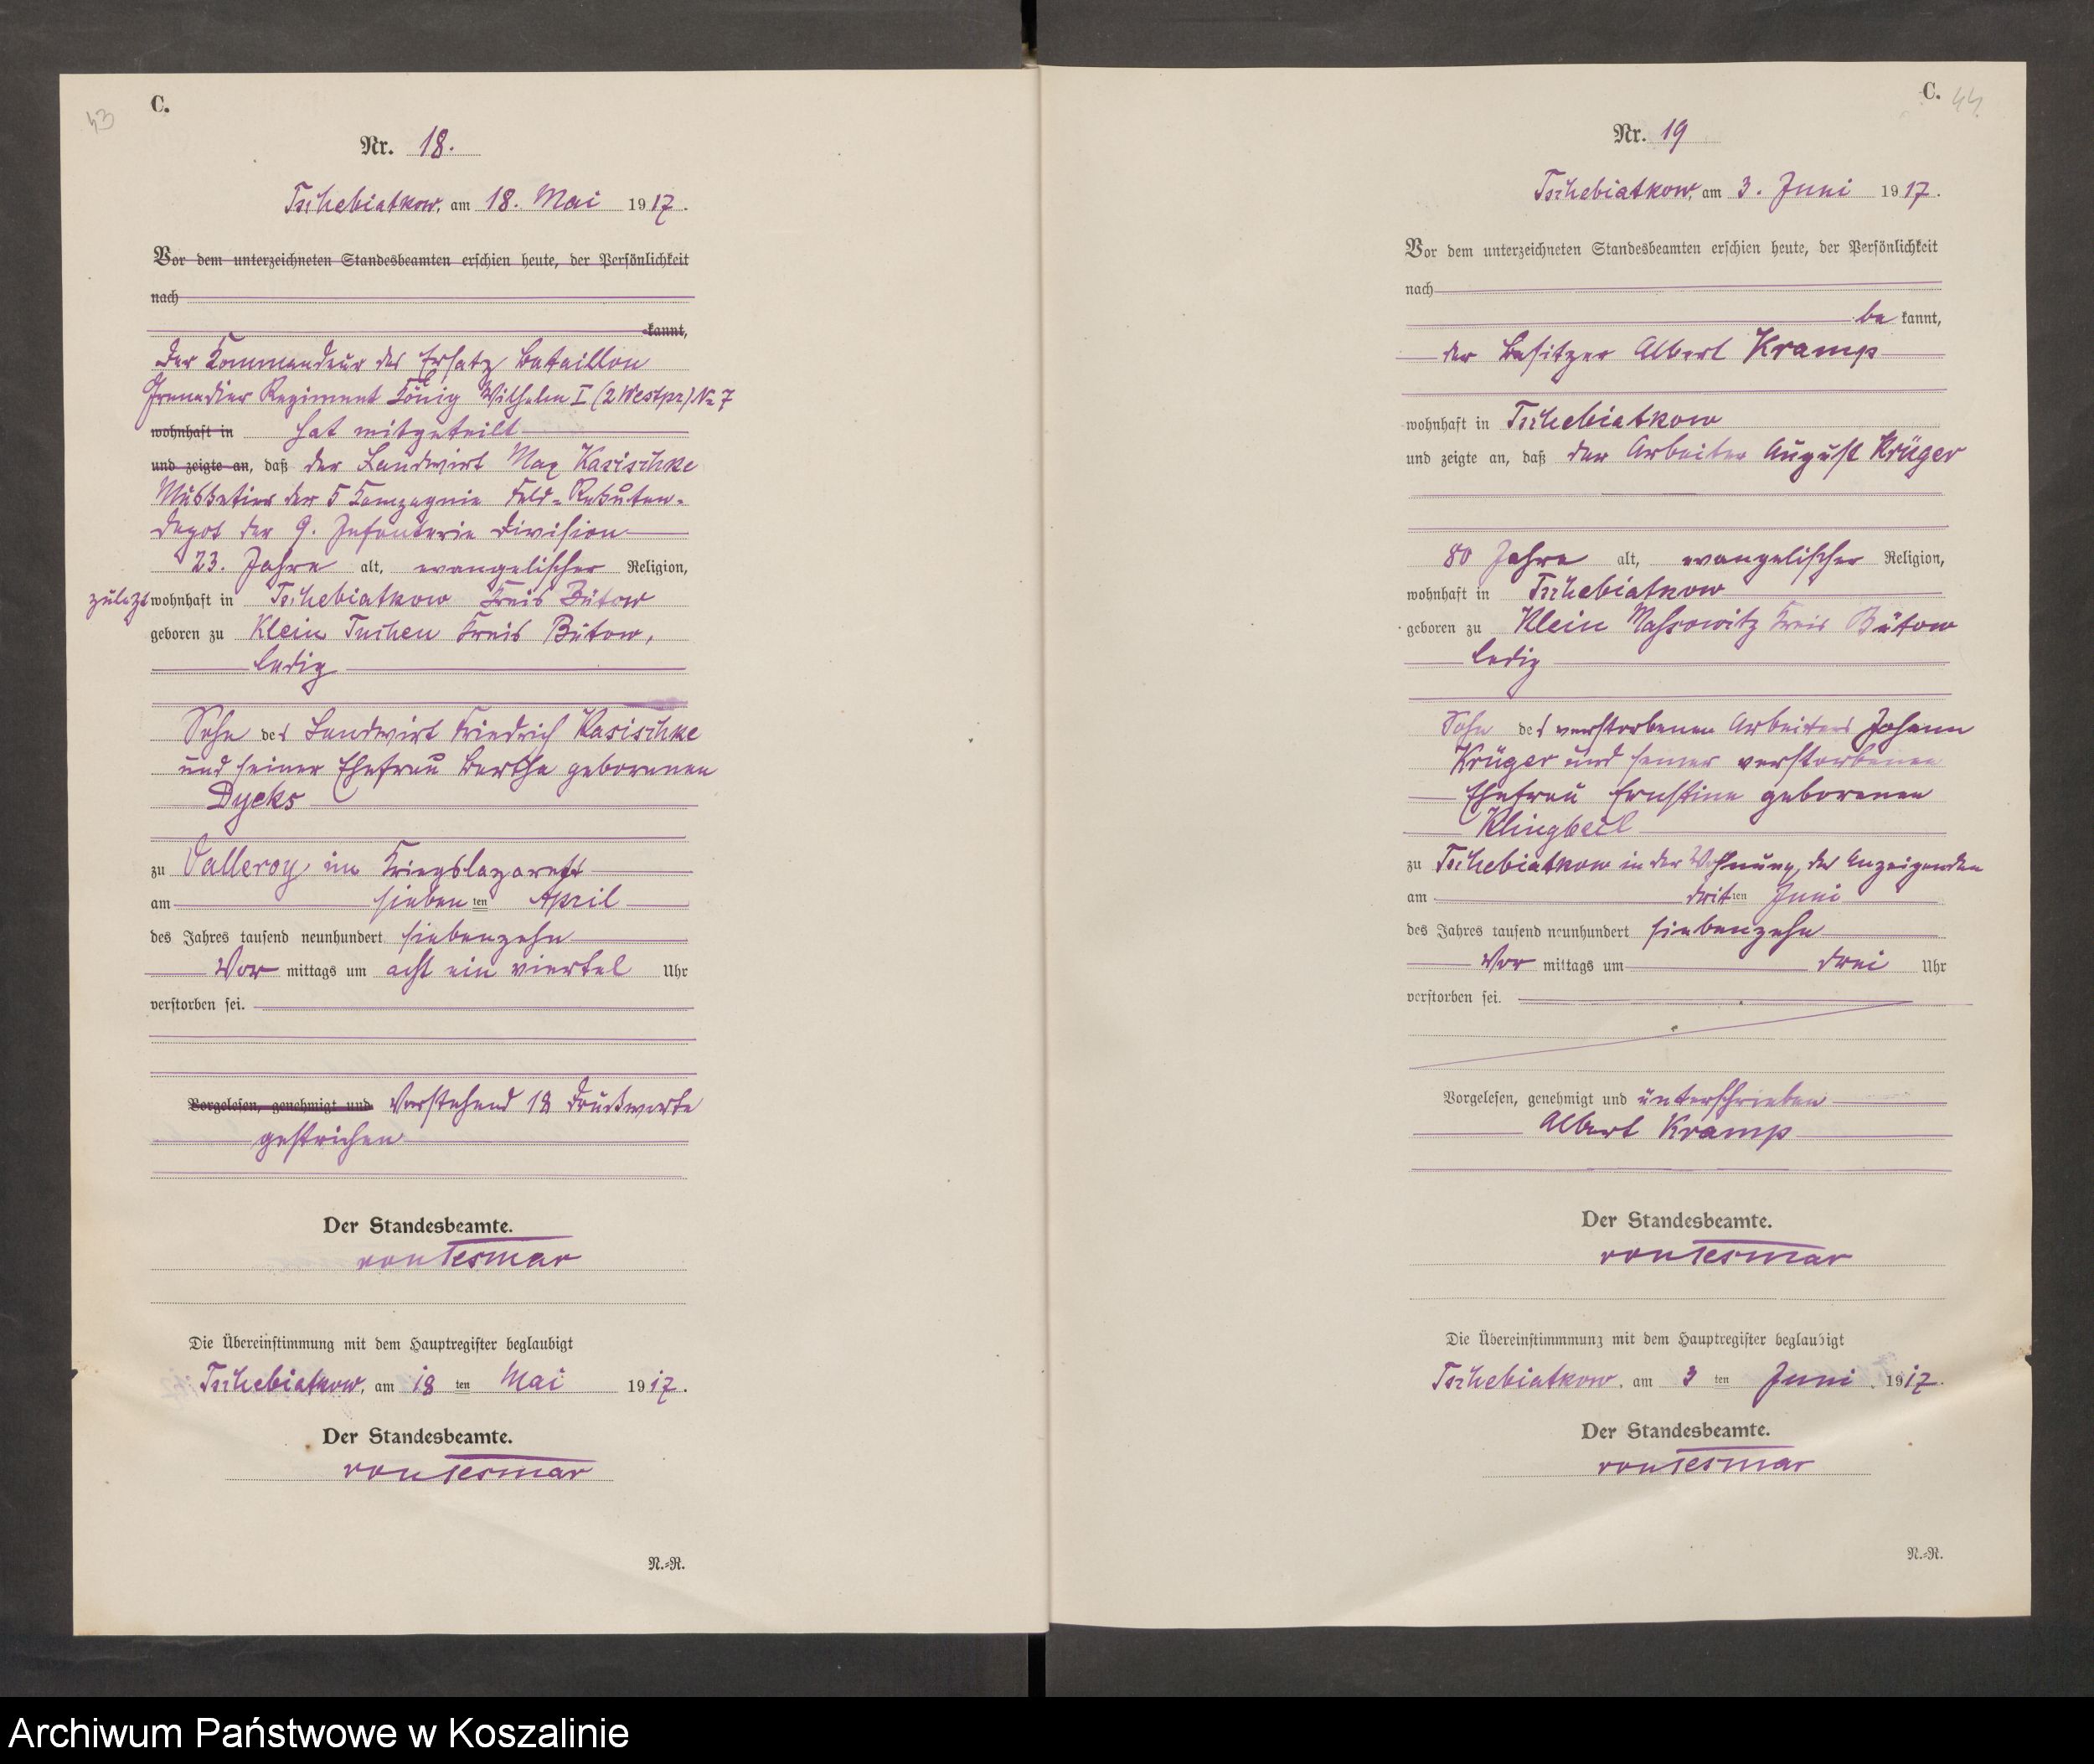 43
C.
Nr. 18.
Tschebiatkow, am 18. Mai 1917.
Vor dem unterzeichneten Standesbeamten erschien heute, der Persönlichkeit
nach
kannt,
der Kommandeur des Ersatz Bataillon
Grenadier Regiment König Wilhelm I (2 Westpr) No 7
wohnhaft in hat mitgeteilt
und zeigte an, daß der Landwirt Max Kasischke
Musketier der 5 Kompagnie Feld-Rekruten-
depot der 9. Infanterie Division
23. Jahre alt, evangelischer Religion,
zuletzt wohnhaft in Tschebiatkow Kreis Bütow
geboren zu Klein Tuchen Kreis Bütow,
ledig
Sohn des Landwirt Friedrich Kasischke
und seiner Ehefrau Bertha geborenen
Dycks
zu Valleroy im Kriegslazarett
am sieben ten April
des Jahres tausend neunhundert siebenzehn
Vor mittags um acht ein viertel Uhr
verstorben sei.
Vorgelesen, genehmigt und Vorstehend 18 Druckworte
gestrichen
Der Standesbeamte.
von Tesmar
Die Übereinstimmung mit dem Hauptregister beglaubigt
Tschebiatkow, am 18 ten Mai 1917.
Der Standesbeamte.
von Tesmar
N.-R.
C. 44
Nr. 19
Tschebiatkow, am 3. Juni 1917.
Vor dem unterzeichneten Standesbeamten erschien heute, der Persönlichkeit
nach
be kannt,
der Besitzer Albert Kramp
wohnhaft in Tschebiatkow
und zeigte an, daß der Arbeiter August Krüger
80 Jahre alt, evangelischer Religion,
wohnhaft in Tschebiatkow
geboren zu Klein Massowitz Kreis Bütow
ledig
Sohn des verstorbenen Arbeiters Johann
Krüger und seiner verstorbenen
Ehefrau Ernstine geborenen
Klingbeil
zu Tschebiatkow in der Wohnung des Anzeigenden
am drit ten Juni
des Jahres tausend neunhundert siebenzehn
Vor mittags um drei Uhr
verstorben sei.
Vorgelesen, genehmigt und unterschrieben
Albert Kramp
Der Standesbeamte.
von Tesmar
Die Übereinstimmmung mit dem Hauptregister beglaubigt
Tschebiatkow, am 3 ten Juni 1917.
Der Standesbeamte.
von Tesmar
N.-R.
Archiwum Państwowe w Koszalinie